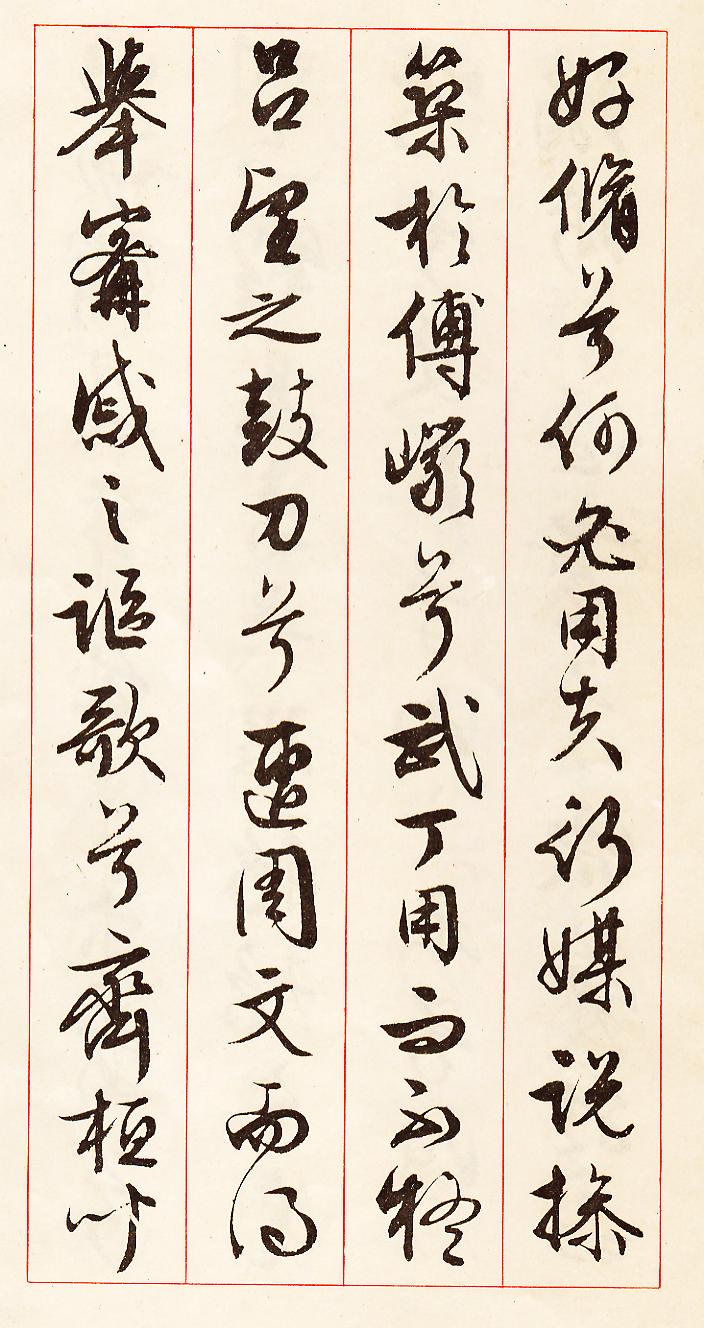 好脩兮何必用夫行媒說操
築於傅巖兮武丁用而不疑
呂望之鼓刀兮遭周文而得
舉甯戚之謳歌兮齊桓聞以